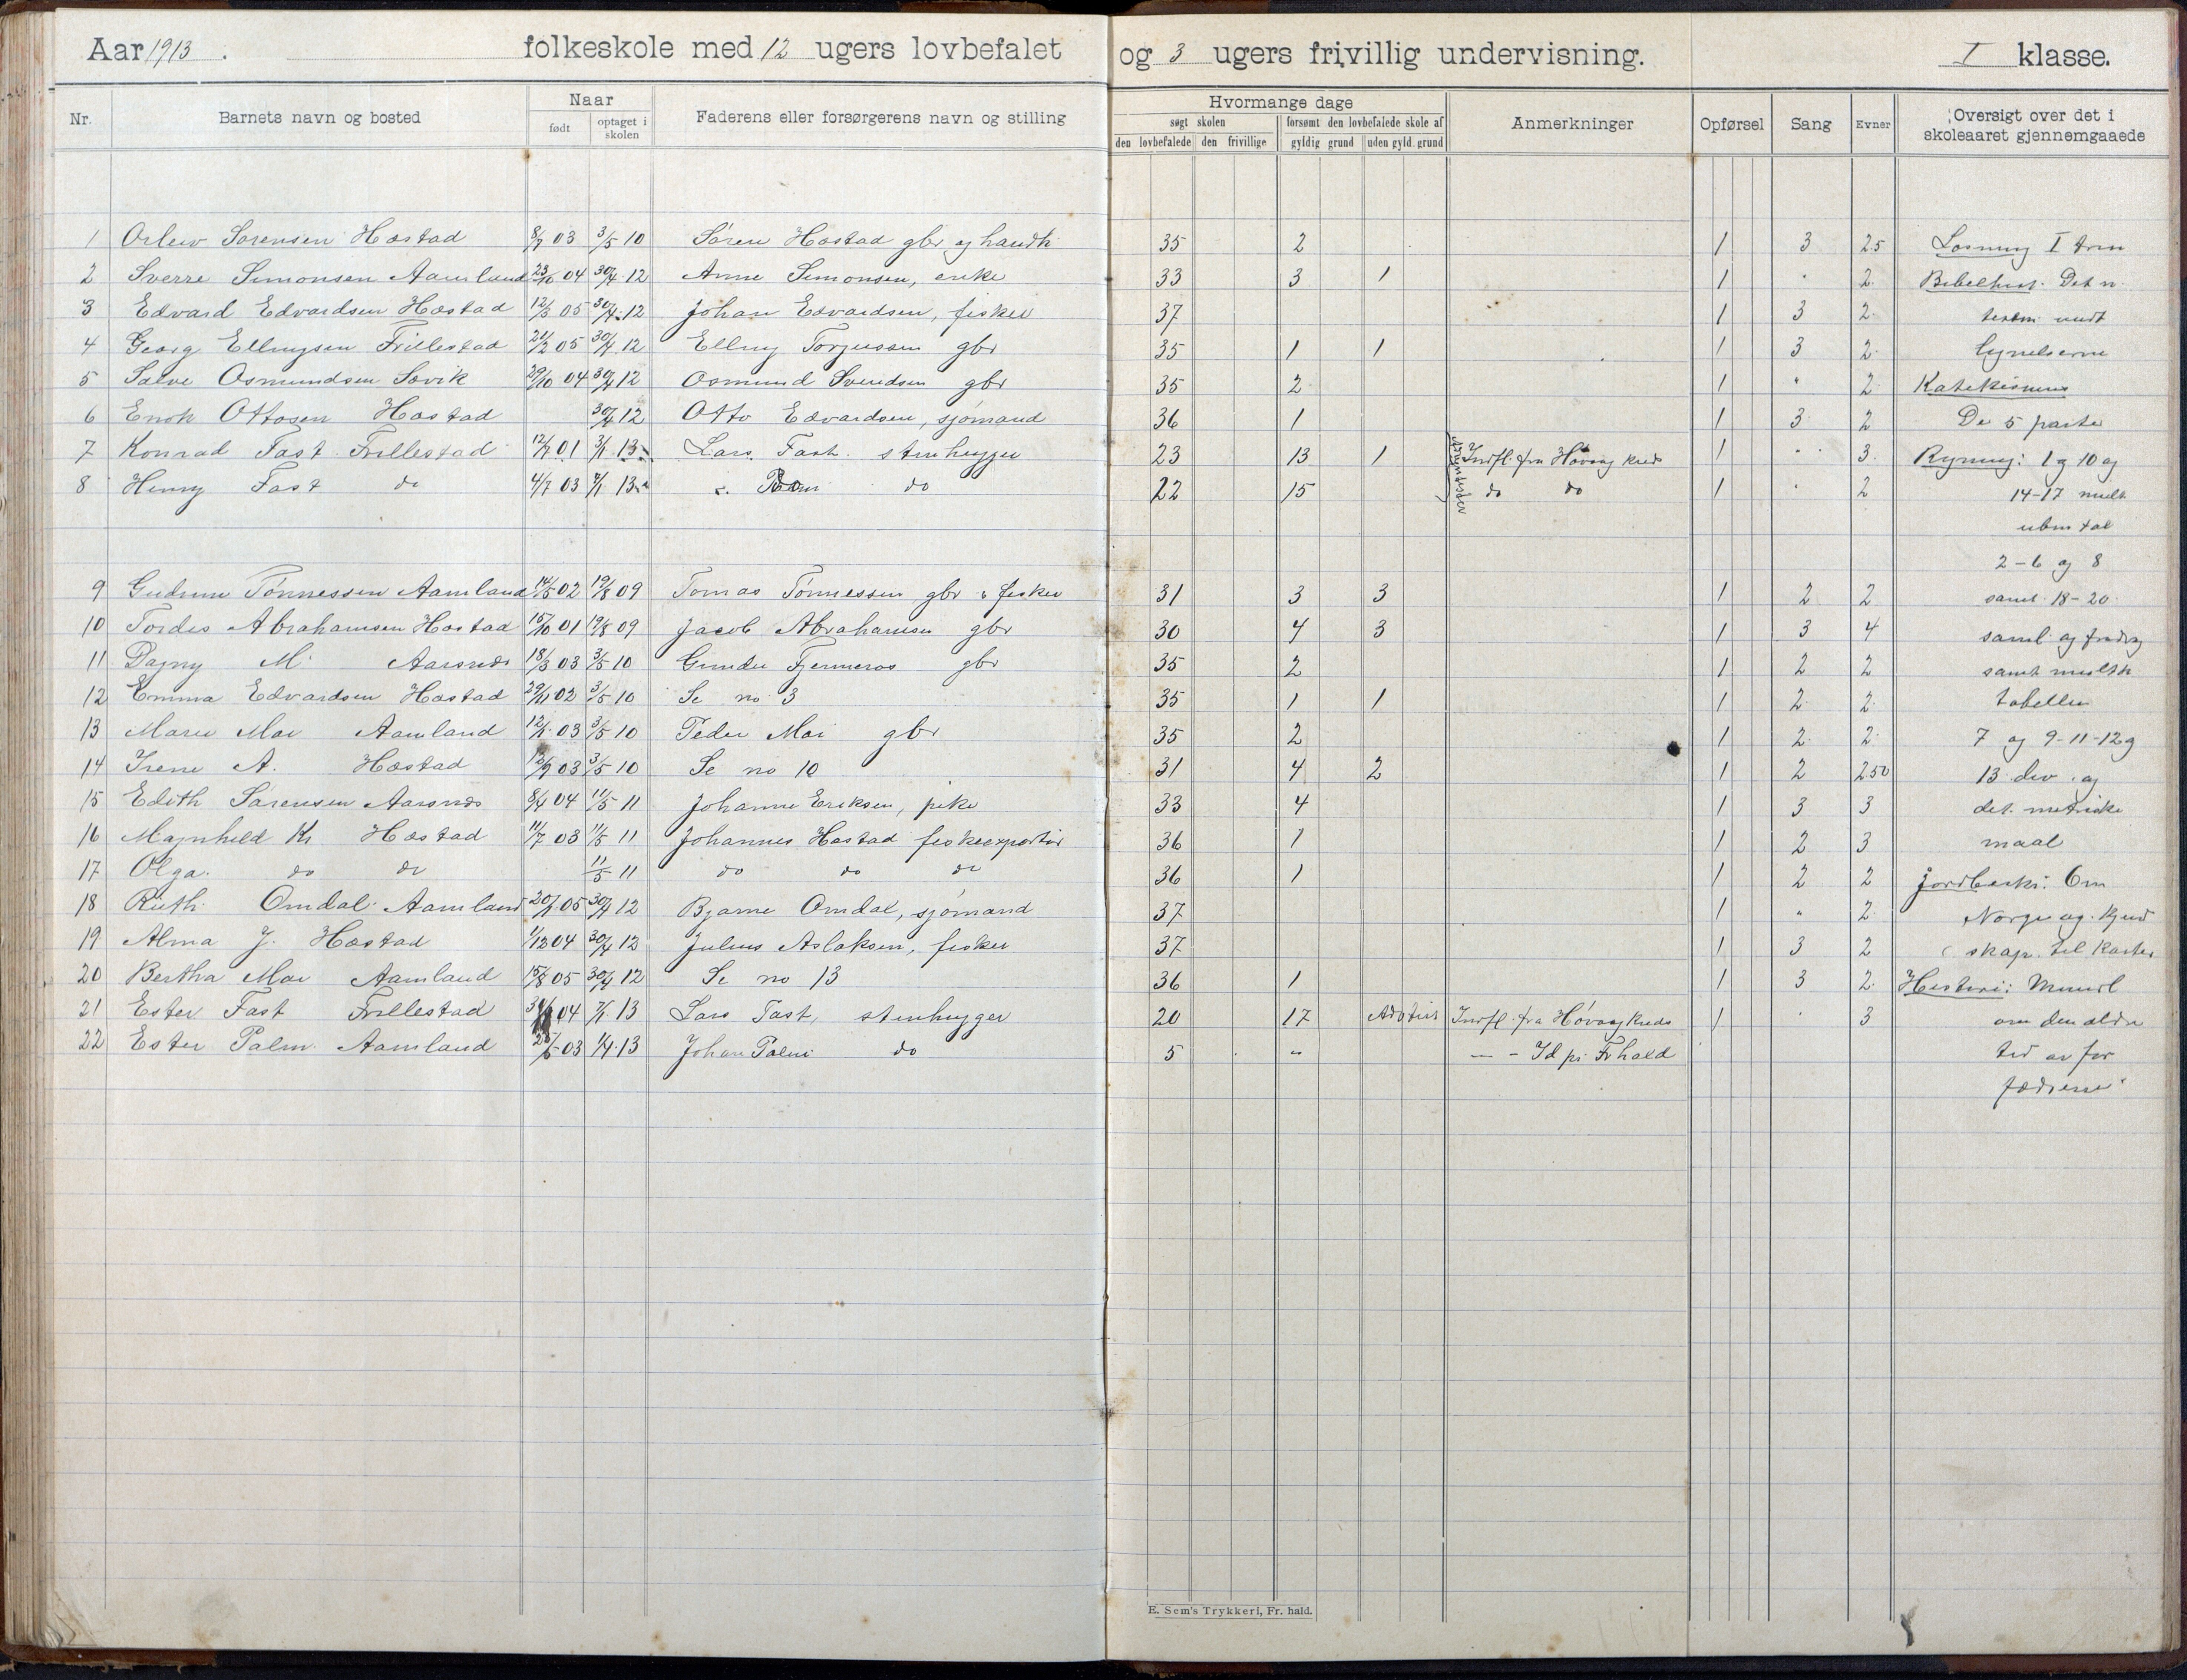 Aar 1913. folkeskole med 12 ugers lovbefalet og 3 ugers frivillig undervisning. I klasse.
Nr. Barnets navn og bosted Naar født optaget i skolen Faderens eller forsørgerens navn og stilling Hvormange dage søgt skolen den lovbefalede den frivillige forsømt den lovbefalede skole af gyldig grund uden gyld. grund Anmerkninger Opførsel Sang Evner Oversigt over det i skoleaaret gjennemgaaede
1 Sørensen Hæstad 8/9 03 3/5 10 Søren Hæstad gbr og handl. 35 2 1 3 2.5 Læsning I trin
2 Sverre Simonsen Aamland 23/10 04 30/4 12 Anne Simonsen, enke 33 3 1 1 " 2. Bibelhist. Det n.
3 Edvard Edvardsen Hæstad 12/3 05 30/4 12 Johan Edvardsen, fisker 37 1 3 2. testm. undt
4 Georg Ellingsen Frillestad 21/2 05 30/4 12 Elling Torjussen gbr 35 1 1 1 3 2.
5 Salve Osmundsen Søvik 29/10 04 30/4 12 Osmund Svendsen gbr 35 2 1 " 2 Katekismus
6 Enok Ottosen Hæstad 30/4 12 Otto Edvardsen, sjømand 36 1 1 3 2 De 5 parter
7 Konrad Fast Frillestad 12/7 01 7/1 13 Lars Fast stenhugger 23 13 1 Adventister Indfl. fra Høvaag kreds 1 " 3 Regning: 1 og 10 og
8 Henry Fast do 4/7 03 7/1 13 do 22 15 do do 1 " 2 14-17 mult
uben tal
2-6 og 8
9 Gudrun Tønnessen Aamland 14/5 02 19/8 09 Tomas Tønnessen gbr & fisker 31 3 3 1 2 2 samt 18-20
10 Tordis Abrahamsen Hæstad 15/10 01 19/8 09 Jacob Abrahamsen gbr 30 4 3 1 3 4
11 Dagny M. Aarsnes 18/3 03 3/5 10 Gunder Fjermeros gbr 35 2 1 2 2 samt multk
12 Emma Edvardsen Hæstad 29/11 02 3/5 10 Se no 3 35 1 1 1 2 2 tabellen
13 Marie Moi Aamland 12/1 03 3/5 10 Peder Moi gbr 35 2 1 2 2 7 og 9-11-12 og
14 Irene A. Hæstad 12/9 03 3/5 10 Se no 10 31 4 2 1 2 2.50 13 div. og
15 Edith Sørensen Aarsnes 8/4 04 11/5 11 Johanne Eriksen, pike 33 4 1 3 3 det metriske
16 Magnhild Kr Hæstad 11/7 03 11/5 11 Johannes Hæstad fiskeexportør 36 1 1 2 3 maal
17 Olga do do 11/5 11 do do do 36 1 1 2 2 Jordbeskr: Om
18 Ruth Omdal Aamland 20/1 05 30/4 12 Bjarne Omdal, sjømand 37 1 " 2 Norge og kjend
19 Alma J. Hæstad 1/12 04 30/4 12 Julius Aslaksen, fisker 37 1 3 2 skap til kartet
20 Bertha Moi Aamland 15/8 05 30/4 12 Se no 13 36 1 1 3 2. Historie: Mundl
21 Ester Fast Frillestad 04 7/1 13 Lars Fast, stenhugger 20 17 Indfl. fra Høvaag kreds 1 " 3 om den ældre
22 Ester Palm Aamland 03 1/4 13 Johan Palm do 5 " — - Id pr. Frhald tid av for
fædrene
E. Sem's Trykkeri, Fr. hald.